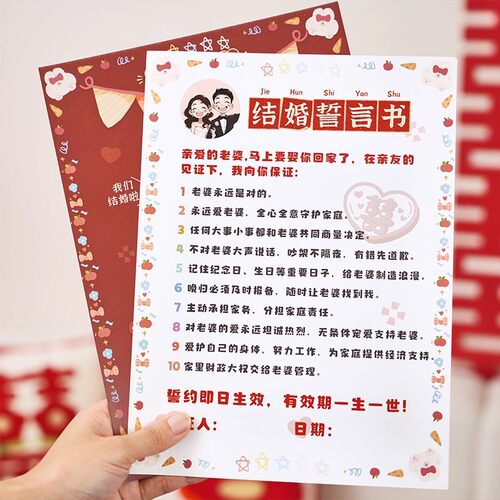 Jie Hun Shi Yan Shu
结婚誓言书
亲爱的老婆,马上要娶你回家了，在亲友的
见证下，我向你保证：
1 老婆永远是对的。
2 永远爱老婆，全心全意守护家庭。
3 任何大事小事都和老婆共同商量决定。
4 不对老婆大声说话，吵架不隔夜，有错先道歉。
5 记住纪念日、生日等重要日子，给老婆制造浪漫。
6 晚归必须及时报备，随时让老婆找到我。
7 主动承担家务，分担家庭责任。
8 对老婆的爱永远坦诚热烈，无条件宠爱支持老婆。
9 爱护自己的身体，努力工作，为家庭提供经济支持。
10 家里财政大权交给老婆管理。
誓约即日生效，有效期一生一世！
人：
日期：
我们
结婚啦
囍